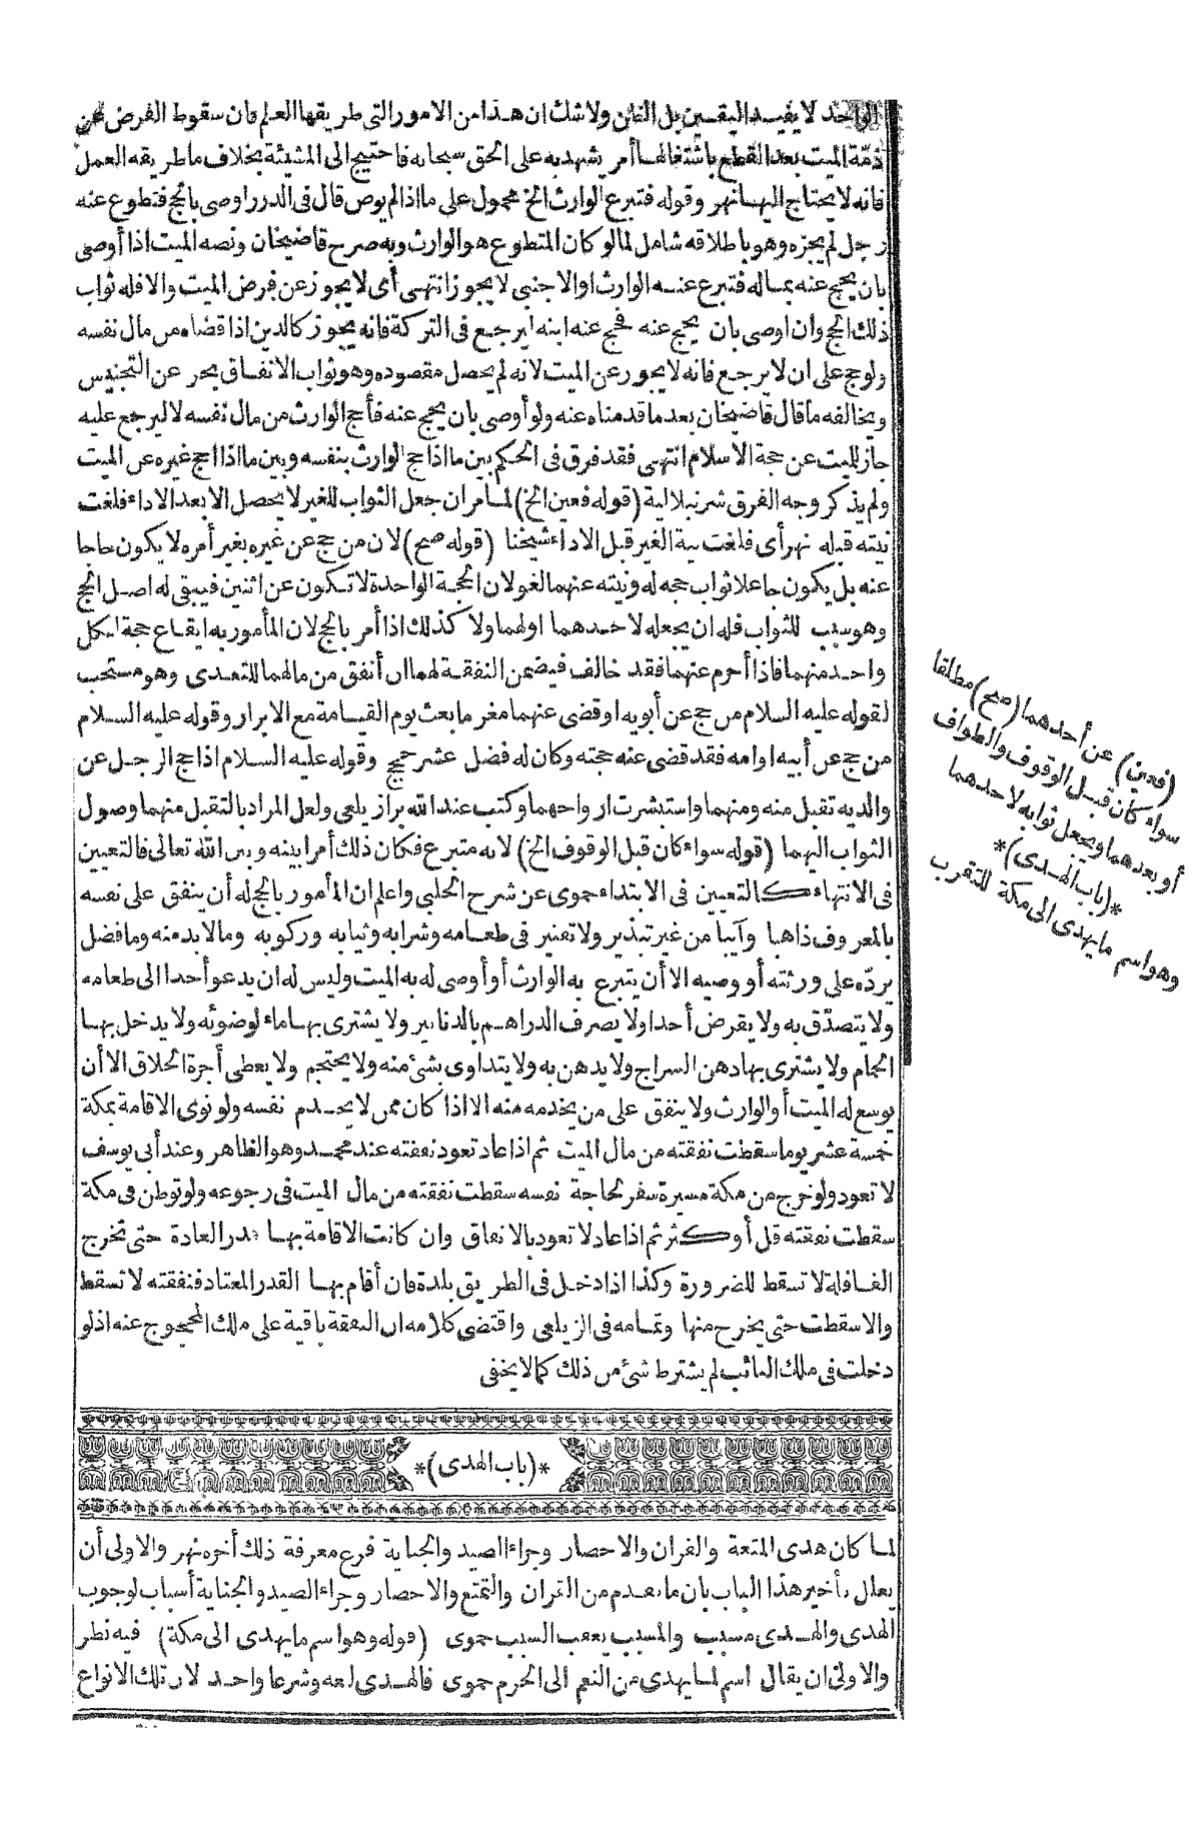 الواحد لا يفيد اليقين بل الظن ولا شك ان هذا من الامور التى طريقها العلم فان سقوط الفرض عن
ذمّة الميت بعد القطع باشتغالها أمر يشهد به على الحق سبحانه فاحتيج الى المشيئة بخلاف ما طريقه العمل
فانه لا يحتاج اليها نهر وقوله فتبرع الوارث الخ محمول على ما اذا لم يوص قال فى الدرر اوصى بالحج فتطوع عنه
رجل لم يجزه وهو باطلاقه شامل لما لو كان المتطوع هو الوارث وبه صرح قاضيخان ونصه الميت اذا أوصى
بان يحج عنه بماله فتبرع عنه الوارث او الاجنبى لا يجوز انتهى أى لا يجوز عن فرض الميت والا فله ثواب
ذلك الحج وان اوصى بان يحج عنه فحج عنه ابنه ليرجع فى التركة فانه يجوز كالدين اذا قضاه من مال نفسه
ولو حج على ان لا يرجع فانه لا يجوز عن الميت لانه لم يحصل مقصوده وهو ثواب الانفاق بحر عن التجنيس
ويخالفه ما قال قاضيخان بعد ما قدمناه عنه ولو أوصى بان يحج عنه فأحج الوارث من مال نفسه لا ليرجع عليه
جاز للميت عن حجة الاسلام انتهى فقد فرق فى الحكم بين ما اذا حج الوارث بنفسه وبين ما اذا احج غيره عن الميت
ولم يذكر وجه الفرق شرنبلالية (قوله فعين الخ) لما مر ان جعل الثواب للغير لا يحصل الا بعد الاداء فلغت
نيته قبله نهر أى فلغت نية الغير قبل الاداء شيخنا (قوله صح) لان من حج عن غيره بغير أمره لا يكون حاجا
عنه بل يكون جاعلا ثواب حجه له ونيته عنهما لغو لان الحجة الواحدة لا تكون عن اثنين فيبقى له اصل الحج
وهو سبب للثواب فله ان يجعله لاحدهما او لهما ولا كذلك اذا أمر بالحج لان المأمور به ايقاع حجة لكل
واحد منهما فاذا أحرم عنهما فقد خالف فيضمن النفقة لهما ان أنفق من مالهما للتعدى وهو مستحب
لقوله عليه السلام من حج عن أبويه او قضى عنهما مغرما بعث يوم القيامة مع الابرار وقوله عليه السلام
من حج عن أبيه او امه فقد قضى عنه حجته وكان له فضل عشر حجج وقوله عليه السلام اذا حج الرجل عن
والديه تقبل منه ومنهما واستبشرت ارواحهما وكتب عند الله برا زيلعى ولعل المراد بالتقبل منهما وصول
الثواب اليهما (قوله سواء كان قبل الوقوف الخ) لانه متبرع فكان ذلك أمرا بينه وبين الله تعالى فالتعيين
فى الانتهاء كالتعيين فى الابتداء حموى عن شرح الحلبى واعلم ان المأمور بالحج له أن ينفق على نفسه
بالمعروف ذاهبا وآيبا من غير تبذير ولا تقتير فى طعامه وشرابه وثيابه وركوبه وما لا بد منه وما فضل
يردّه على ورثته أو وصيه الا أن يتبرع به الوارث أو أوصى له به الميت وليس له ان يدعو أحدا الى طعامه
ولا يتصدّق به ولا يقرض أحدا ولا يصرف الدراهم بالدنانير ولا يشترى بها ماء لوضوئه ولا يدخل بها
الحمام ولا يشترى بها دهن السراج ولا يدهن به ولا يتداوى بشئ منه ولا يحتجم ولا يعطى أجرة الحلاق الا أن
يوسع له الميت أو الوارث ولا ينفق على من يخدمه منه الا اذا كان ممن لا يخدم نفسه ولو نوى الاقامة بمكة
خمسة عشر يوما سقطت نفقته من مال الميت ثم اذا عاد تعود نفقته عند محمد وهو الظاهر وعند أبى يوسف
لا تعود ولو خرج من مكة مسيرة سفر لحاجة نفسه سقطت نفقته من مال الميت فى رجوعه ولو توطن فى مكة
سقطت نفقته قل أو كثر ثم اذا عاد لا تعود بالاتفاق وان كانت الاقامة بها قدر العادة حتى تخرج
القافلة لا تسقط للضرورة وكذا اذا دخل فى الطريق بلدة فان أقام بها القدر المعتاد فنفقته لا تسقط
والا سقطت حتى يخرج منها وتمامه فى الزيلعى واقتضى كلامه ان النفقة باقية على ملك المحجوج عنه اذ لو
دخلت فى ملك النائب لم يشترط شئ من ذلك كما لا يخفى
*(باب الهدى)*
لما كان هدى المتعة والقران والاحصار وجزاء الصيد والجناية فرع معرفة ذلك أخره نهر والاولى أن
يعلل تأخير هذا الباب بان ما تقدم من القران والتمتع والاحصار وجزاء الصيد والجناية أسباب لوجوب
الهدى والهدى مسبب والمسبب يعقب السبب حموى (قوله وهو اسم ما يهدى الى مكة) فيه نظر
والاولى ان يقال اسم لما يهدى من النعم الى الحرم حموى فالهدى لغة وشرعا واحد لان تلك الانواع
(فعين) عن أحدهما (صح) مطلقا
سواء كان قبل الوقوف والطواف
أو بعدهما ويجعل ثوابه لاحدهما
*(باب الهدى)*
وهو اسم ما يهدى الى مكة للتقرب